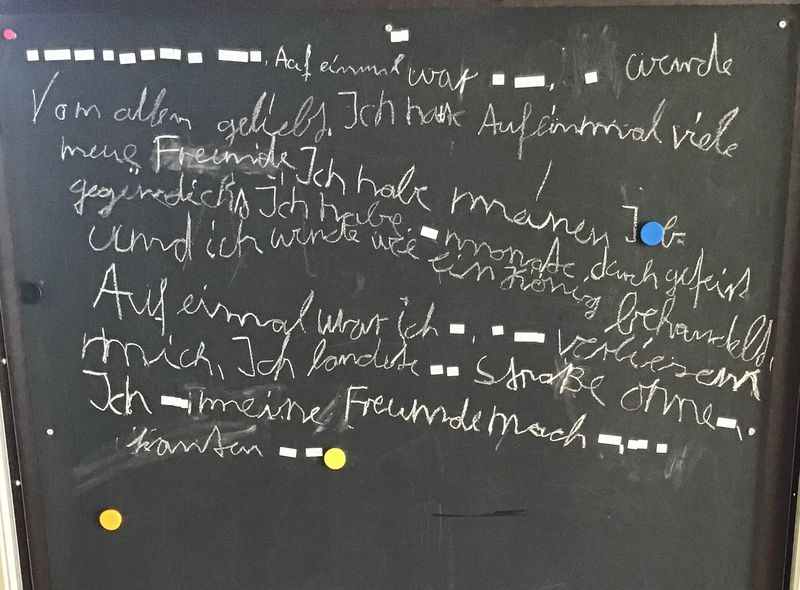 Auf einmal war wurde
Vom allem geliebt. Ich hatte Aufeinmal viele
neue Freunde Ich habe meinen Job
gegündicht Ich habe monate durchgefeirt
und ich wurde wie ein König behandelt.
Auf einmal war ich verliesen
mich. Ich landete Straße ohne
Ich meine Freunde nach
kanten